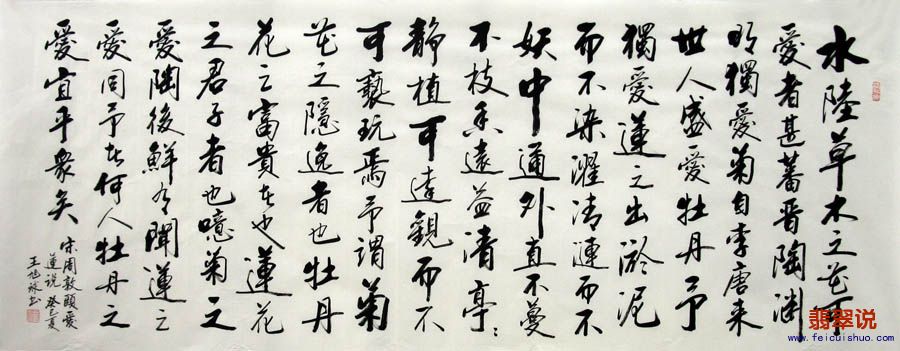 水陸草木之花可
愛者甚蕃晋陶渊
明獨愛菊自李唐来
世人盛愛牡丹予
獨愛蓮之出淤泥
而不染濯清漣而不
妖中通外直不蔓
不枝香遠益清亭〻
静植可遠觀而不
可褻玩焉予謂菊
花之隱逸者也牡丹
花之富貴者也蓮花
之君子者也噫菊之
愛陶後鮮有聞蓮之
愛同予者何人牡丹之
愛宜乎衆矣
宋周敦頤愛
蓮说 癸巳夏
王旭书
翡翠说
www.feicuishuo.com